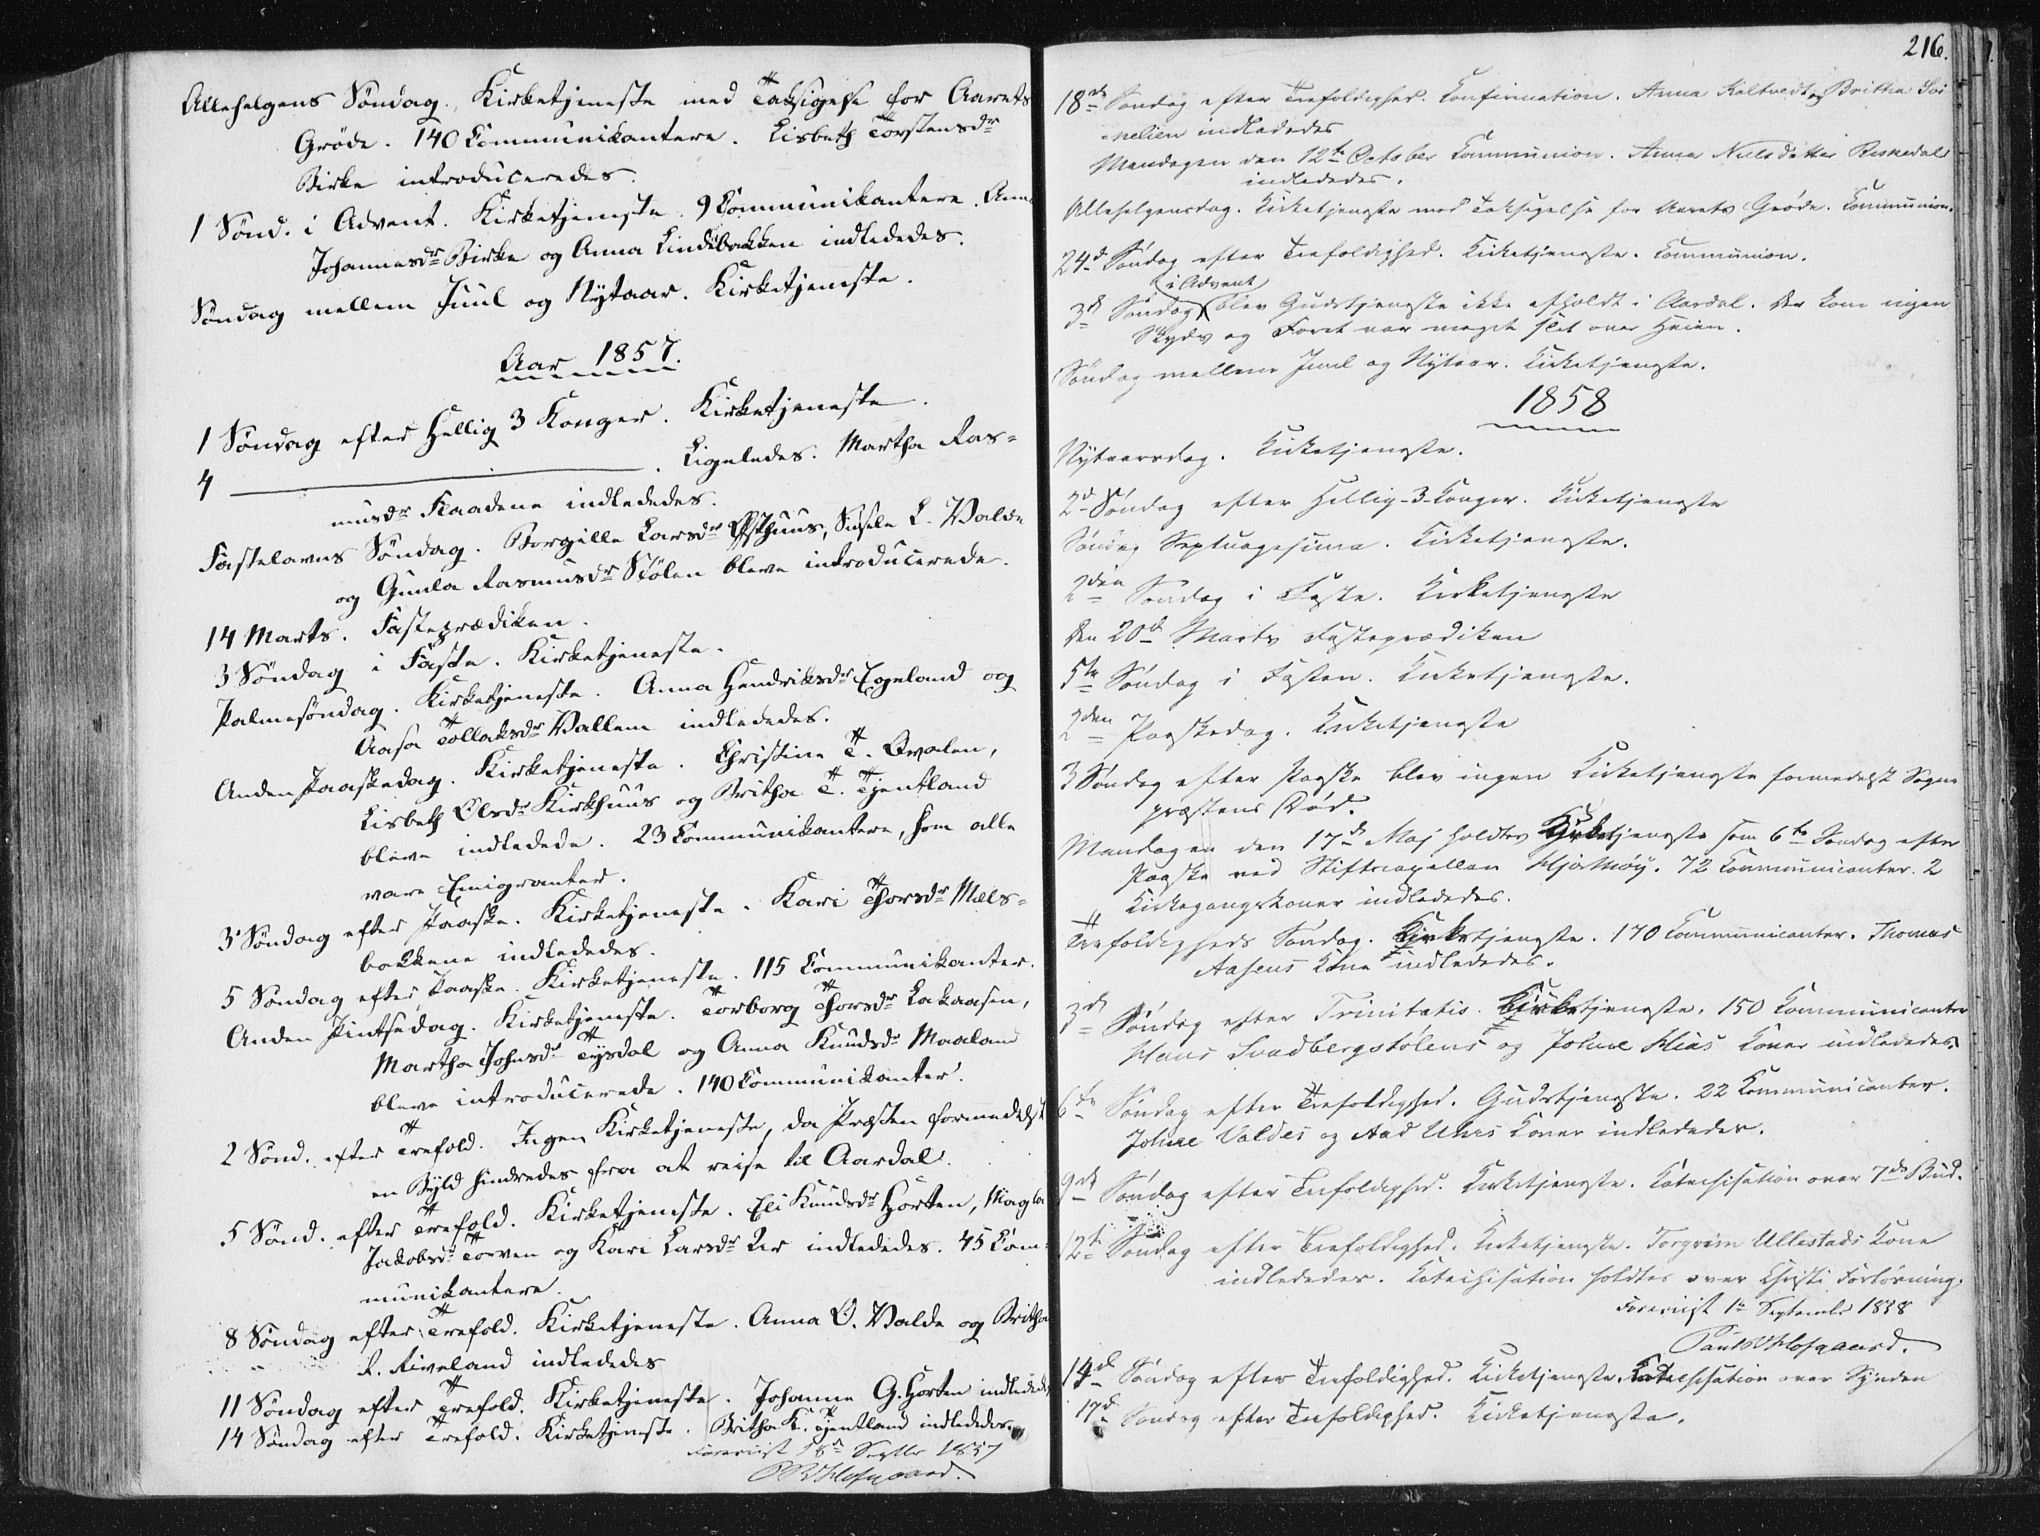 Allehelgens Søndag. Kirketjeneste med Taksigelse for Aarets
Grøde. 140 Communikantere. Lisbeth Torstensdr
Birke introduceredes.
1 Sønd. i Advent. Kirketjeneste. 9 Communikantere. Anna
Johannesdr Birke og Anna Lindebakken indlededes.
Søndag mellem Juul og Nytaar. Kirketjeneste.
Aar 1857.
1 Søndag efter Hellig 3 Konger. Kirketjeneste.
4 ——— . Ligeledes. Martha Ras=
musdr Kaadene indlededes.
Fastelavns Søndag. Borgille Larsdr Østhuus, Sissele L. Valde
og Gunla Rasmusdr Stølen bleve introducerede.
14 Marts. Fasteprædiken.
3 Søndag i Faste. Kirketjeneste.
Palmesøndag. Kirketjeneste. Anna Hendriksdr Egeland og
Aasa Tollaksdr Vallem indlededes.
Anden Paaskedag. Kirketjeneste. Christine T. Qvalen,
Lisbeth Olsdr Kirkhuus og Britha T. Tjentland
bleve indledede. 23 Communikantere, som alle
vare Emigranter.
3 Søndag efter Paaske. Kirketjeneste. Kari Thorsdr Mæls=
bakkene indlededes.
5 Søndag efter Paaske. Kirketjeneste. 115 Communikanter.
Anden Pintsedag. Kirketjeneste. Torborg Thorsdr Lakaasen,
Martha Johnsdr Tysdal og Anna Knudsdr Maaland
bleve introducerede. 140 Communikanter.
2 Sønd. efter Trefold. Ingen Kirketjeneste, da Præsten formedelst
en Byld hindredes fra at reise til Aardal.
5 Sønd. efter Trefold. Kirketjeneste. Eli Knudsdr Horten, Magla
Jakobsdr Torven og Kari Larsdr Uer indlededes. 45 Com=
munikantere.
8 Søndag efter Trefold. Kirketjeneste. Anna O. Valde og Britha
R. Riveland indlededes
11 Søndag efter Trefold. Kirketjeneste. Johanne G. Horten indlededes
14 Søndag efter Trefold. Kirketjeneste. Britha K. Tjentland indlededes.
Foreviist 18de Septbr 1857
216.
18de Søndag efter Trefoldighed. Confirmation. Anna Kaltvedt og Britha
indlededes
Mandagen den 12te October Communion. Anna Nielsdatter Riskedal
indlededes.
Allehelgensdag. Kirketjeneste med Taksigelse for Aarets Grøde. Communion.
24de Søndag efter Trefoldighed. Kirketjeneste. Communion.
i Advent
3de Søndag blev Gudstjeneste ikke afholdt i Aardal. Der kom ingen
Skyds og Føret var meget slet over Heien.
Søndag mellem Juul og Nytaar. Kirketjeneste.
1858
Nytaarsdag. Kirketjeneste.
2d Søndag efter Hellig-3-Konger. Kirketjeneste
Søndag Septuagesima. Kirketjeneste.
2den Søndag i Faste. Kirketjeneste
Den 20de Marts Fasteprædiken
5te Søndag i Fasten. Kirketjeneste.
2den Paaskedag. Kirketjeneste
3 Søndag efter Paaske blev ingen Kirketjeneste formedelst Sogne
præstens Død.
Mandagen den 17de Maj holdtes Kirketjeneste som 6te Søndag efter
Paaske ved Stiftscapellan Hjelmöy. 72 Communicanter. 2
Kirkegangskoner indlededes.
Trefoldigheds Søndag. Kirketjeneste. 170 Communicanter. Thomas
Aasens Kone indlededes.
3de Søndag efter Trinitatis. Kirketjeneste. 150 Communicanter
Hans Svadbergstølens og Johne Hias Koner indlededes.
6te Søndag efter Trefoldighed. Gudstjeneste. 22 Communicanter.
Johne Valdes og Aad Uers Koner indlededes.
9de Søndag efter Trefoldighed. Kirketjeneste. Katechisation over 7de Bud.
12te Søndag efter Trefoldighed. Kirketjeneste. Torgrim Ullestads Kone
indlededes. Katechisation holdtes over Christi Forløsning.
Foreviist 1te September 1858
14de Søndag efter Trefoldighed. Kirketjeneste. Katechisation over Synden
17de Søndag efter Trefoldighed. Kirketjeneste.